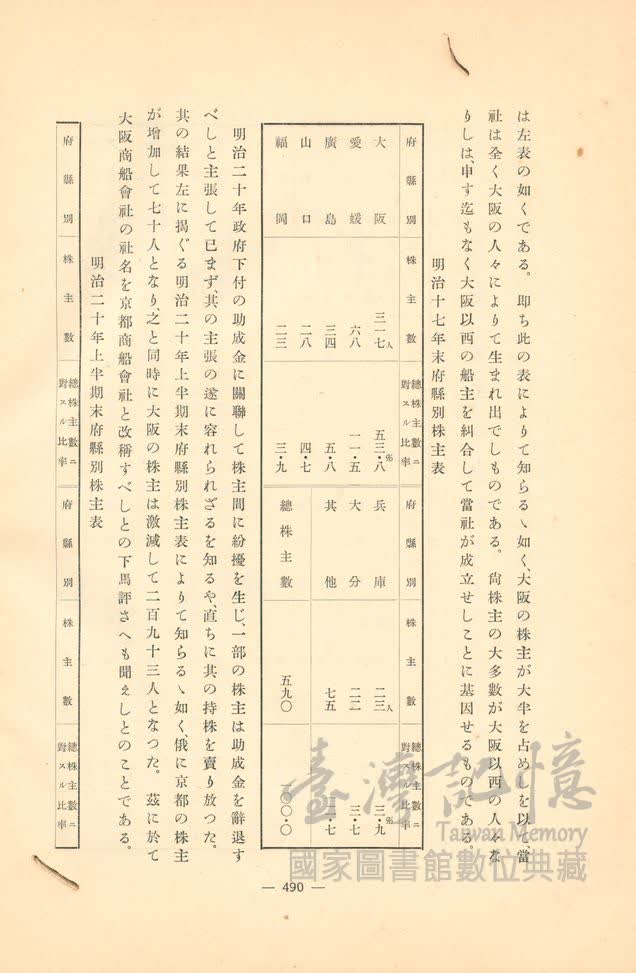 は左表の如くである。卽ち此の表によりて知らるゝ如く、大阪の株主が大半を占めしを以て、當
社は全く大阪の人々によりて生まれ出でしものである。尙株主の大多數が大阪以西の人々な
りしは、申す迄もなく大阪以西の船主を糾合して當社が成立せしことに基因せるものである。
明治十七年末府縣別株主表
府縣別 株主數 總株主數ニ對スル比率 府縣別 株主數 總株主數ニ對スル比率
大阪 三一七人 五三・八% 兵庫 二三人 三・九%
愛媛 六八 一一・五 大分 二二 三・七
廣島 三四 五・八 其他 七五 一二・七
山口 二八 四・七
福岡 二三 三・九 總株主數 五九〇 一〇〇・〇
明治二十年政府下付の助成金に關聯して株主間に紛擾を生じ、一部の株主は助成金を辭退す
べしと主張して已まず、其の主張の遂に容れられざるを知るや、直ちに其の持株を賣り放つた。
其の結果左に揭ぐる明治二十年上半期末府縣別株主表によりて知らるゝ如く、俄に京都の株主
が增加して七十人となり、之と同時に大阪の株主は激減して二百九十三人となつた。茲に於て
大阪商船會社の社名を京都商船會社と改稱すべしとの下馬評さへも聞えしとのことである。
明治二十年上半期末府縣別株主表
府縣別 株主數 總株主數ニ對スル比率 府縣別 株主數 總株主數ニ對スル比率
— 490 —
臺灣記憶
Taiwan Memory
國家圖書館數位典藏